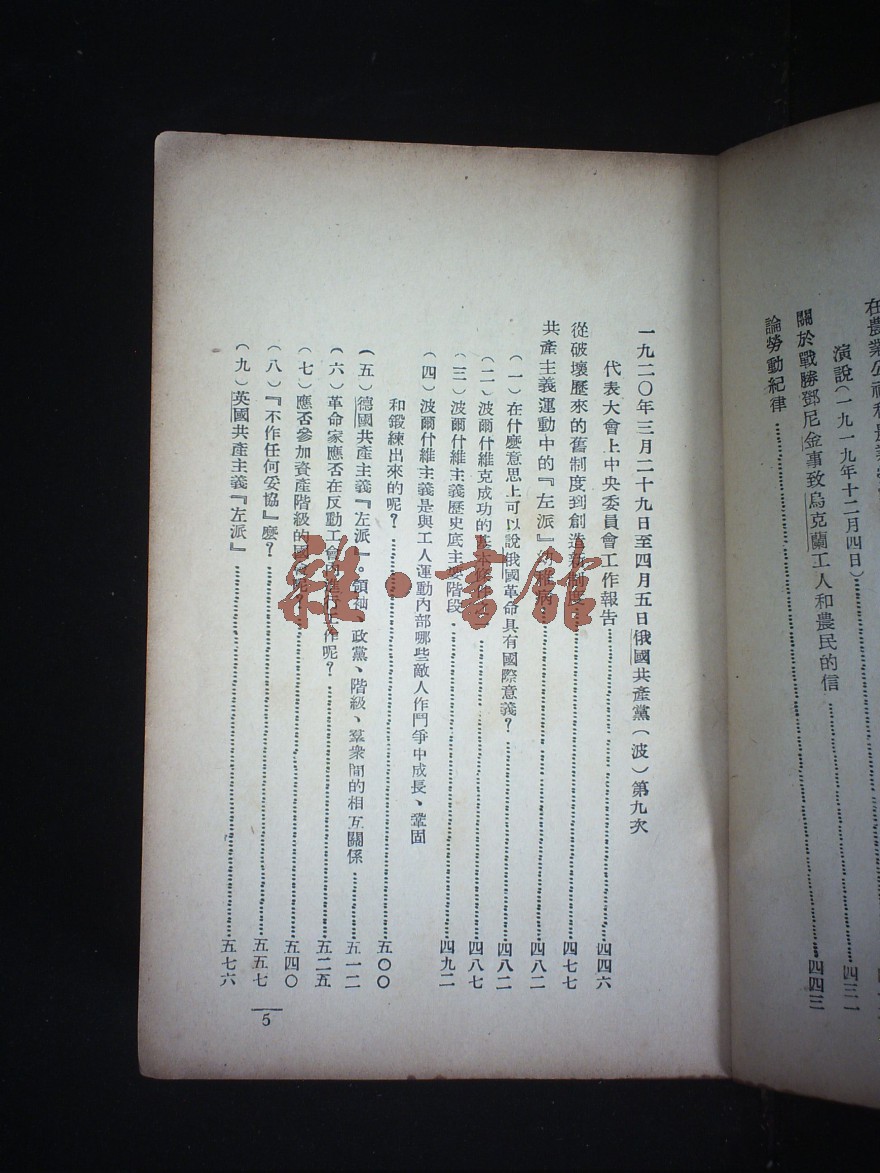 在農業公社和農業
演說(一九一九年十二月四日)……四三一
關於戰勝鄧尼金事致烏克蘭工人和農民的信
論勞動紀律……四四三
一九二〇年三月二十九日至四月五日俄國共產黨(波)第九次
代表大會上中央委員會工作報告……四四六
從破壞歷來的舊制度到創造新制度……四七七
共產主義運動中的『左派』幼稚病……四八二
(一)在什麼意思上可以說俄國革命具有國際意義?……四八二
(二)波爾什維克成功的基本條件之一……四八七
(三)波爾什維主義歷史底主要階段……四九二
(四)波爾什維主義是與工人運動內部哪些敵人作鬥爭中成長、鞏固
和鍛練出來的呢?……五〇〇
(五)德國共產主義『左派』。領袖、政黨、階級、羣衆間的相互關係……五一二
(六)革命家應否在反動工會內進行工作呢?……五二五
(七)應否參加資產階級的國會呢?……五四〇
(八)『不作任何妥協』麼?……五五七
(九)英國共產主義『左派』……五七六
5
雜·書館